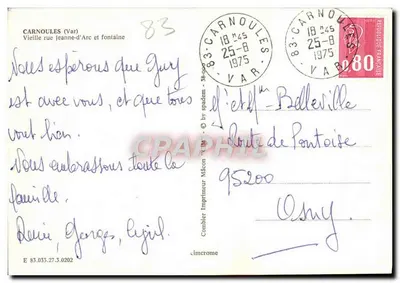 CARNOULES (Var)
Vieille rue Jeanne-d'Arc et fontaine
83
Nous espérons que Guy
est avec vous, et que tous
vont bien.
Nous embrassons toute la
famille.
Georges,
E 83.033.27.3.0202
Combier Imprimeur Mâcon
CPARAMA
83 - CARNOULES
18 H45
25-8
1975
VAR
83 - CARNOULES
18 H45
25-8
1975
VAR
0,80
Mr et Mme Belleville
Route de Pontoise
95200
Osny